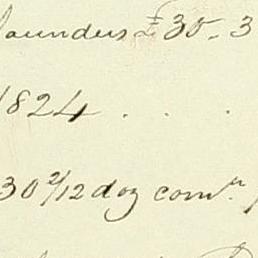 Saunders £30. 3
1824 . . .
30 2/12 doz com.n